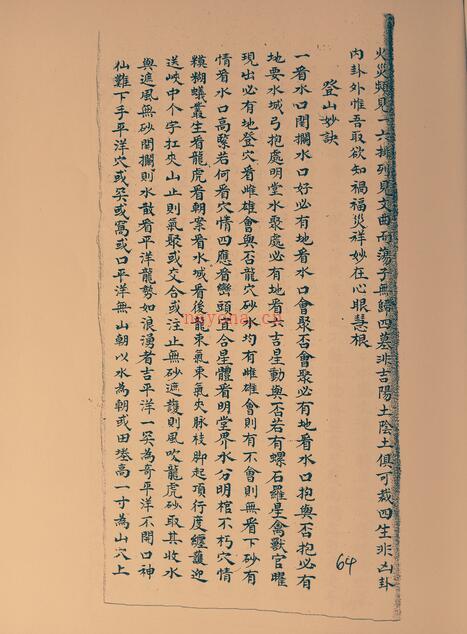 火災頻見一六排列見文曲而蕩子無歸四墓非吉陽土陰土俱可裁四生非凶卦
內卦外惟吾取欲知禍福災祥妙在心眼慧根
登山妙訣
一看水口関攔水口好必有地看水口會聚否會聚必有地看水口抱與否抱必有
地要水城弓抱處明堂水聚處必有地看其吉星動與否若有螺石羅星禽獸官曜
現出必有地登穴看雌雄會與否龍穴砂水均有雌雄會則有不會則無看下砂有
情看水口高緊若何看穴情四應看巒頭宜合星體看明堂界水分明棺不朽穴情
糢糊蟻叢生看龍虎看朝案看水城看後龍束氣束氣夾脉枝脚起項行度纏護迎
送峽中个字扛夾山止則氣聚或交合或注止無砂遮護則風吹龍虎砂取其收水
與遮風無砂関攔則水散看平洋龍勢如浪湧者吉平洋一突為奇平洋不開口神
仙難下手平洋穴或突或窩或口平洋無山朝以水為朝或田塍高一寸為山穴上
64